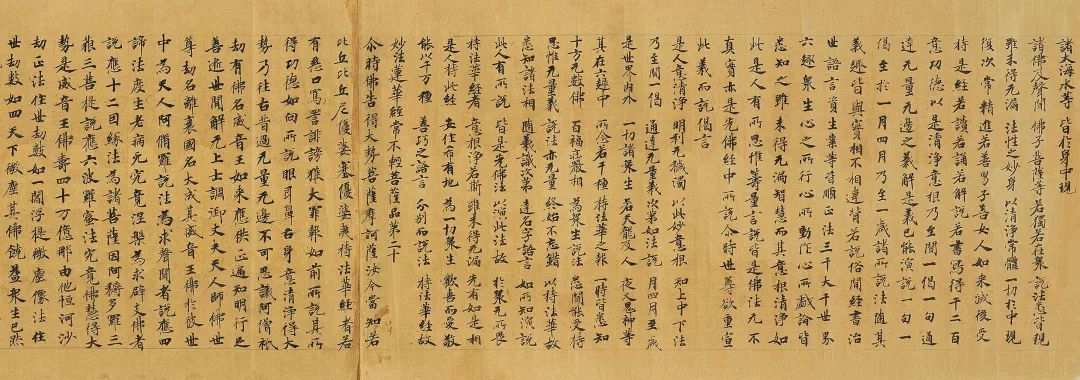 諸大海水等 皆於身中現
諸佛及聲聞 佛子菩薩等 若獨若在眾 說法悉皆現
雖未得无漏 法性之妙身 以清淨常體 一切於中現
復次常精進若善男子善女人如來滅後受
持是經若讀若誦若解說若書寫得千二百
意功德以是清淨意根乃至聞一偈一句通
達无量无邊之義解是義已能演說一句一
偈至於一月四月乃至一歲諸所說法隨其
義趣皆與實相不相違背若說俗間經書治
世語言資生業等皆順正法三千大千世界
六趣眾生心之所行心所動作心所戲論皆
悉知之雖未得无漏智慧而其意根清淨如
此是人有所思惟籌量言說皆是佛法无不
真實亦是先佛經中所說尒時世尊欲重宣
此義而說偈言
是人意清淨 明利无穢濁 以此妙意根 知上中下法
乃至聞一偈 通達无量義 次第如法說 月四月至歲
是世界內外 一切諸眾生 若天龍及人 夜叉鬼神等
其在六趣中 所念若干種 持法華之報 一時皆悉知
十方无數佛 百福莊嚴相 為眾生說法 悉聞能受持
思惟无量義 說法亦无量 終始不忘錯 以持法華故
悉知諸法相 隨義識次第 達名字語言 如所知演說
此人有所說 皆是先佛法 以演此法故 於眾无所畏
持法華經者 意根淨若斯 雖未得无漏 先有如是相
是人持此經 安住希有地 為一切眾生 歡喜而愛敬
能以千万種 善巧之語言 分別而說法 持法華經故
妙法蓮華經常不輕菩薩品第二十
尒時佛告得大勢菩薩摩訶薩汝今當知若
比丘比丘尼優婆塞優婆夷持法華經者若
有惡口罵詈誹謗獲大罪報如前所說其所
得功德如向所說眼耳鼻舌身意清淨得大
勢乃往古昔過无量无邊不可思議阿僧祇
劫有佛名威音王如來應供正遍知明行足
善逝世間解无上士調御丈夫天人師佛世
尊劫名離衰國名大成其威音王佛於彼世
中為天人阿脩羅說法為求聲聞者說應四
諦法度生老病死究竟涅槃為求辟支佛者
說應十二因緣法為諸菩薩因阿耨多羅三
藐三菩提說應六波羅蜜法究竟佛慧得大
勢是威音王佛壽四十万億那由他恒河沙
劫正法住世劫數如一閻浮提微塵像法住
世劫數如四天下微塵其佛饒益眾生已然